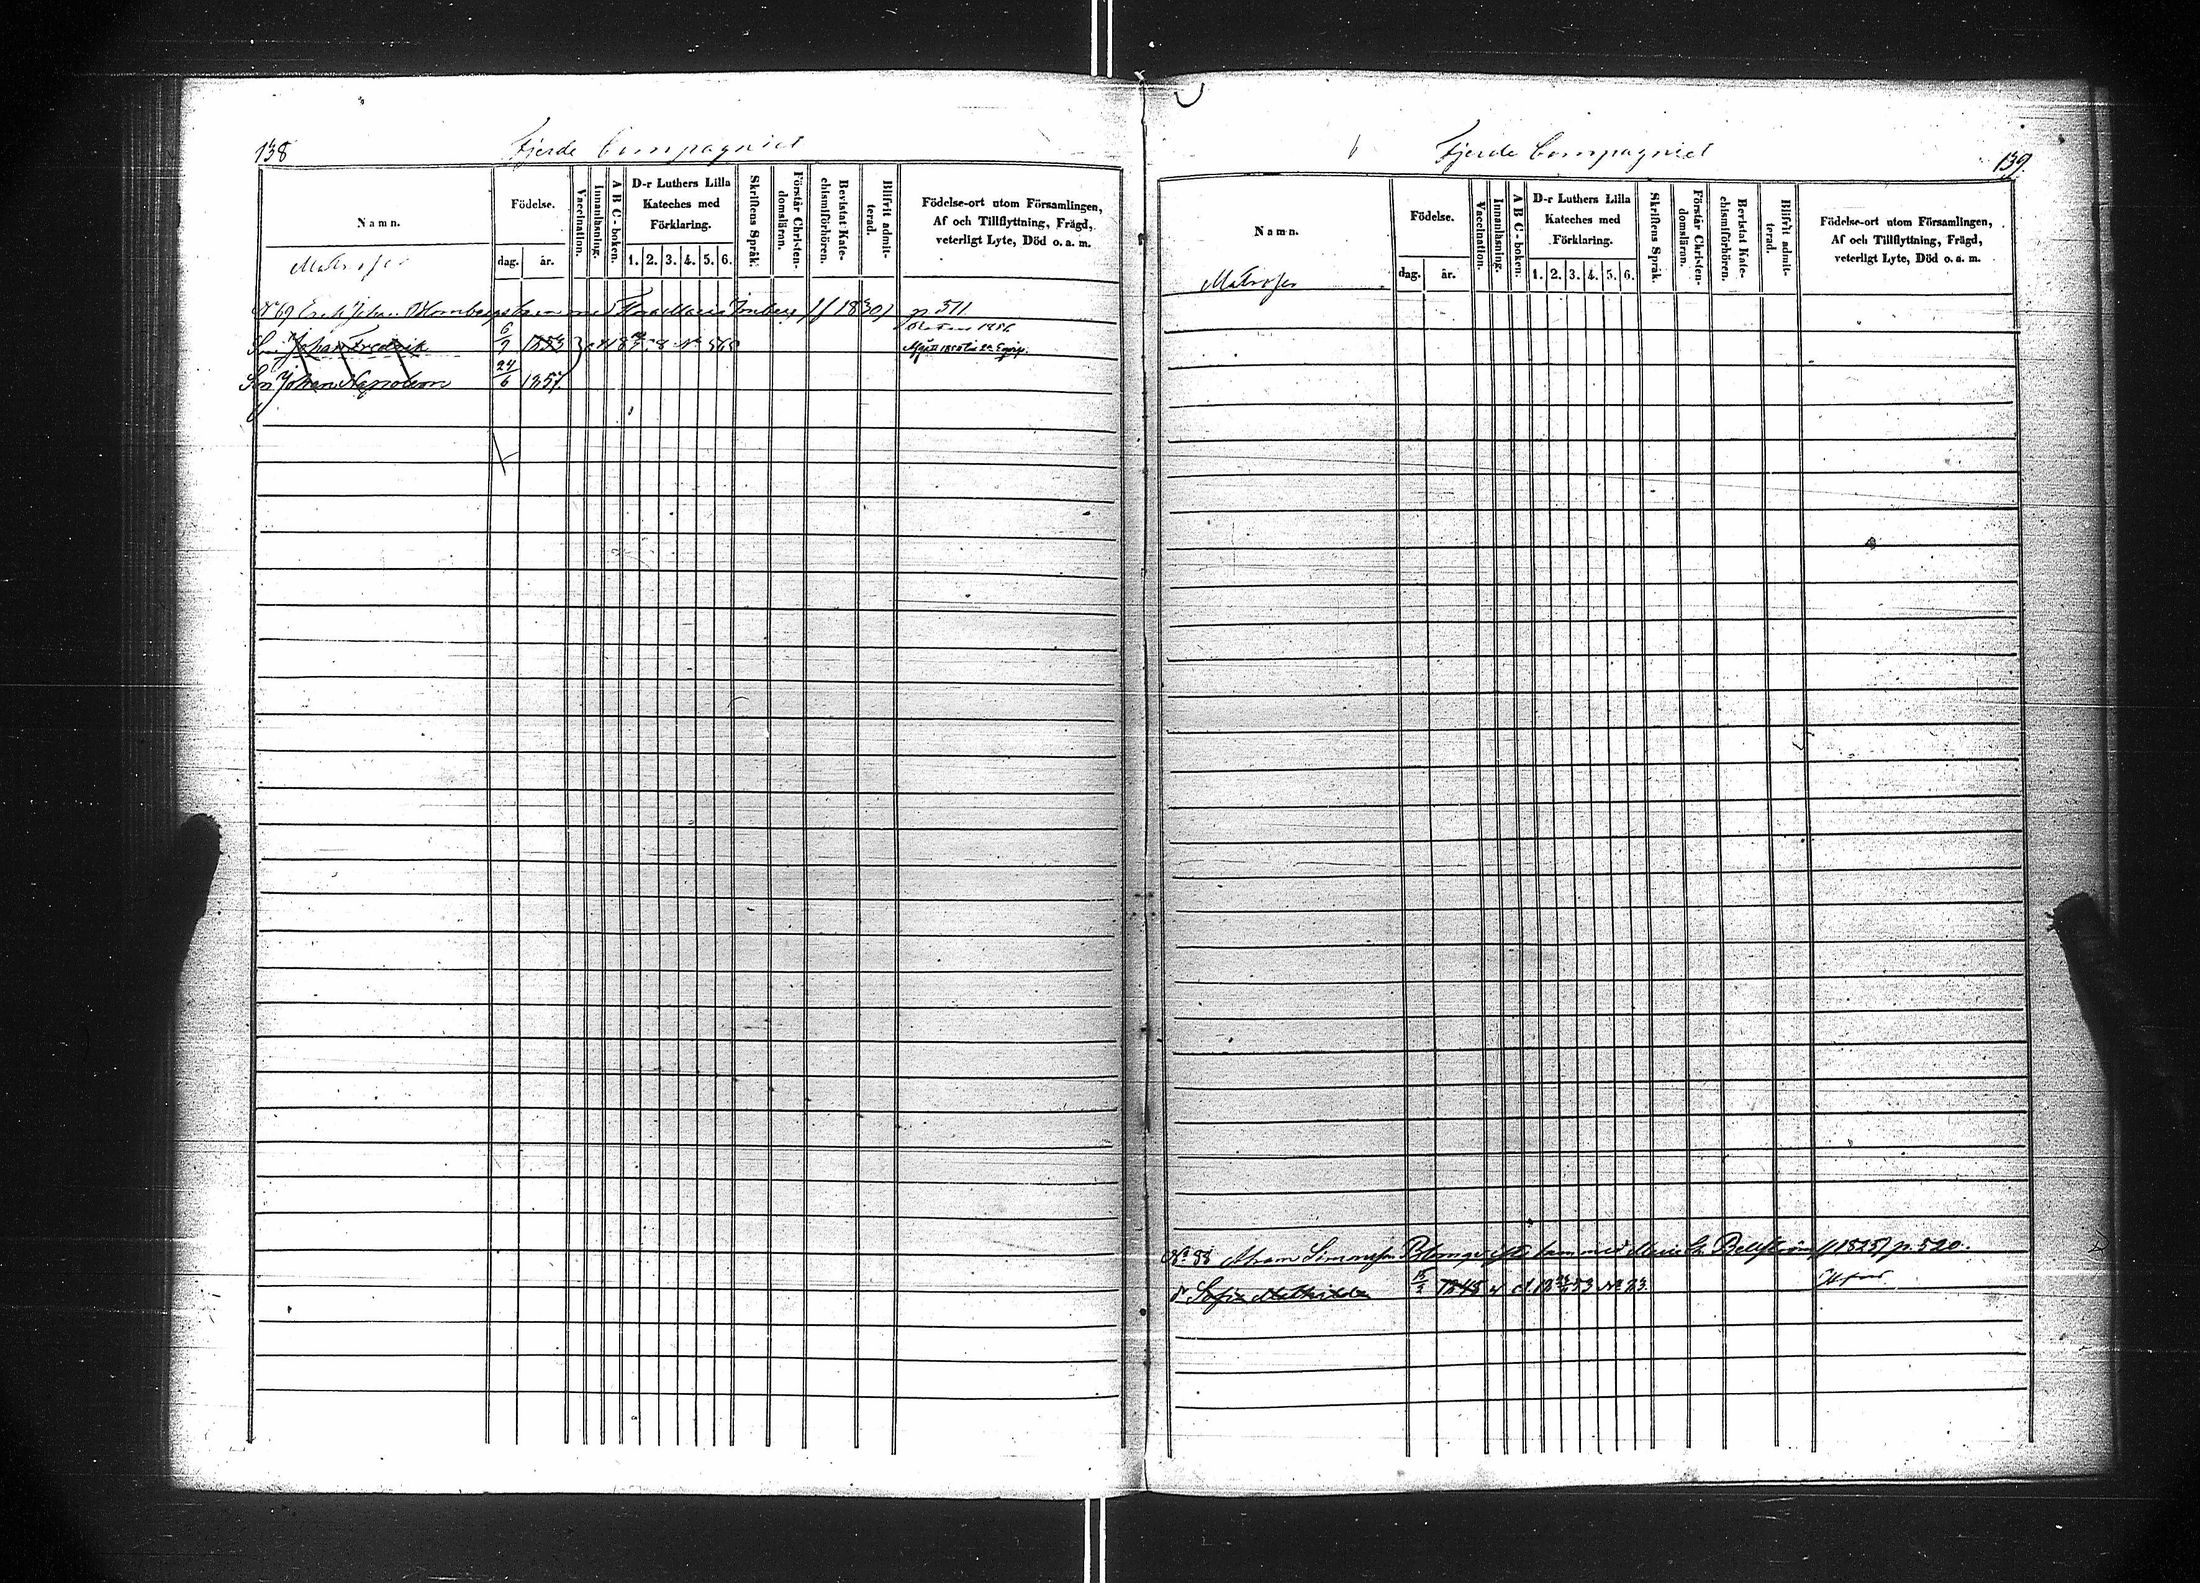 138
Fjerde Compagniet
Namn.
Födelse.
dag.
år.
Vaccination.
Innanläsning.
A B C-boken.
D-r Luthers Lilla
Kateches med
Förklaring.
1. 2. 3. 4. 5. 6.
Skriftens Språk.
Förstår Christen-
domsläran.
Bevistat Kate-
chismiförhören.
Blifvit admit-
terad.
Födelse-ort utom Församlingen,
Af och Tillflyttning, Frägd,
veterligt Lyte, Död o. a. m.
Matroser
No 69 Johan med Maria 1830) p. 511.
Johan Fredrik 6/9
Son Johan Napoleon 24/6 1857
139.
Fjerde Compagniet
Namn.
Födelse.
dag.
år.
Vaccination.
Innanläsning.
A B C-boken.
D-r Luthers Lilla
Kateches med
Förklaring.
1. 2. 3. 4. 5. 6.
Skriftens Språk.
Förstår Christen-
domsläran.
Bevistat Kate-
chismiförhören.
Blifvit admit-
terad.
Födelse-ort utom Församlingen,
Af och Tillflyttning, Frägd,
veterligt Lyte, Död o. a. m.
Matroser
No 88 med p. 520.
d Sofia Mathilda 1848